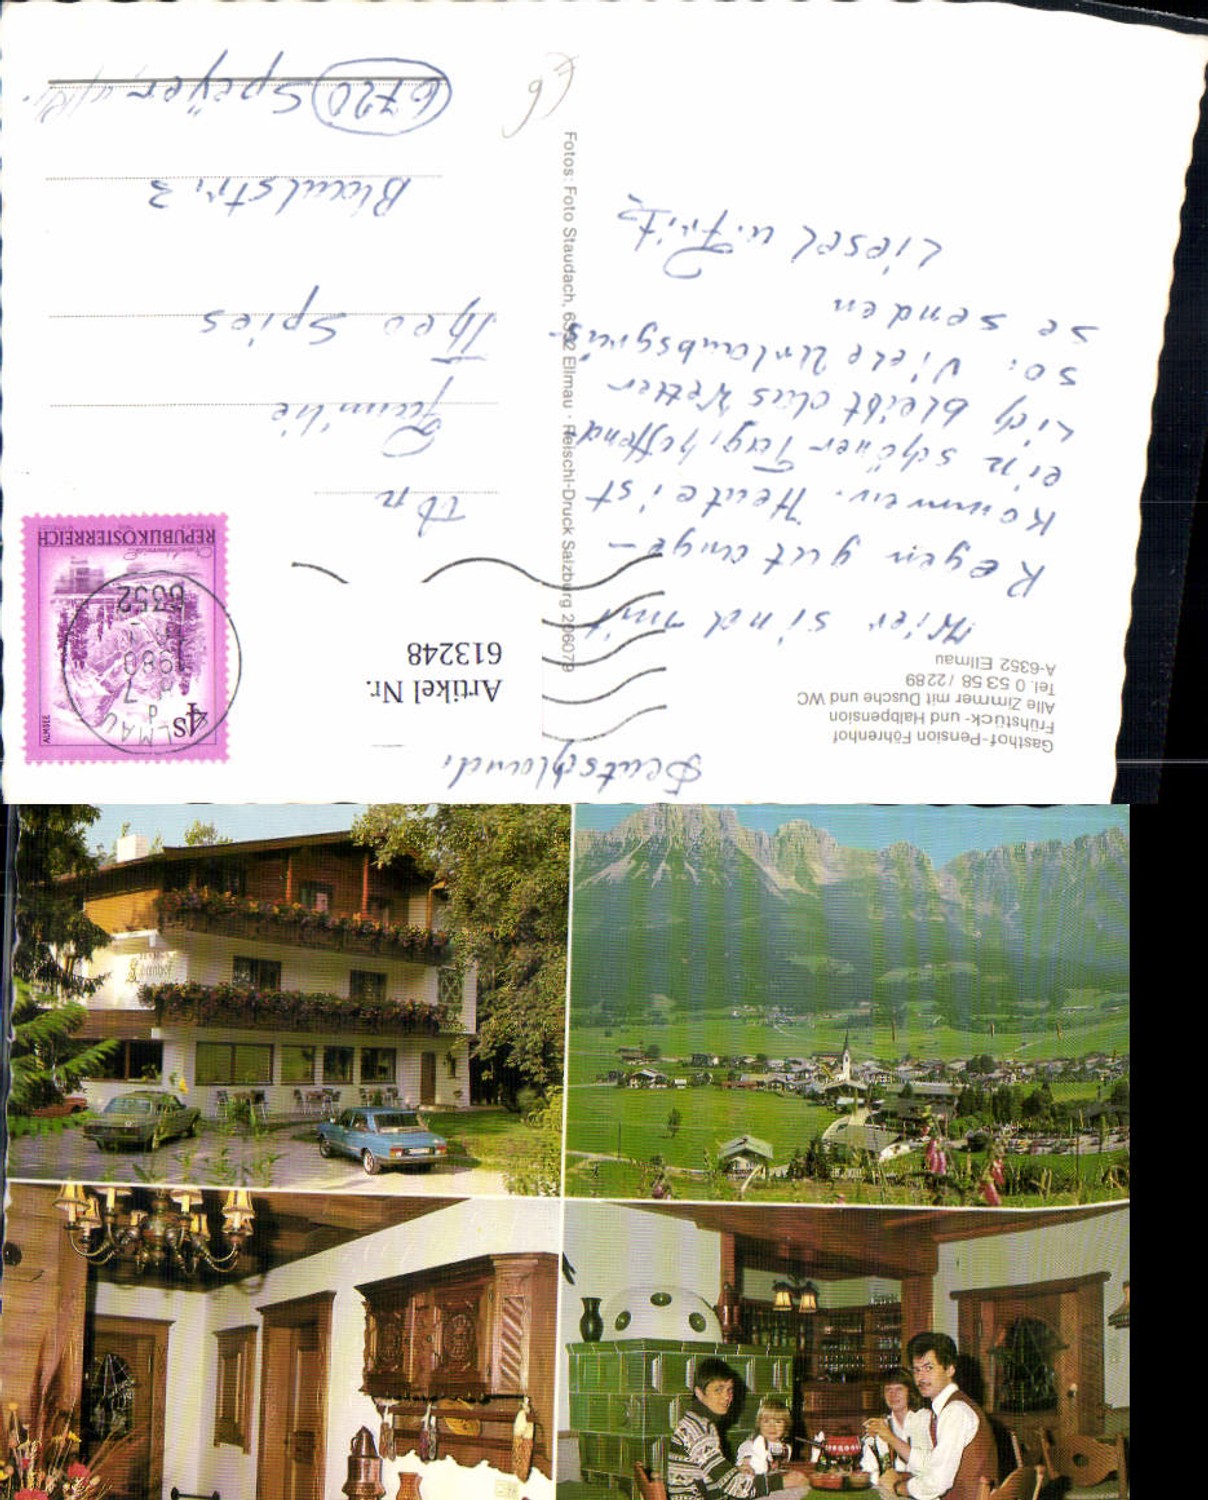 Gasthof-Pension Föhrenhof
Frühstück- und Halbpension
Alle Zimmer mit Dusche und WC
Tel. 0 53 58 / 2289
A-6352 Ellmau
Hier sind mit
Regen gut ange-
kommen. Heute ist
ein schöner Tag, hoffend
lich bleibt das Wetter
so. Viele Urlaubsgrüs-
se senden
Liesel u. Fritz
Fotos: Foto Staudach, 6352 Ellmau · Reischl-Druck Salzburg 206079
Deutschland.
Artikel Nr.
613248
4S
ALMSEE
REPUBLIK ÖSTERREICH
ELLMAU
1980
6352
An
Familie
Theo Spies
Blaulstr. 3
6720 Speyer a/Rh.